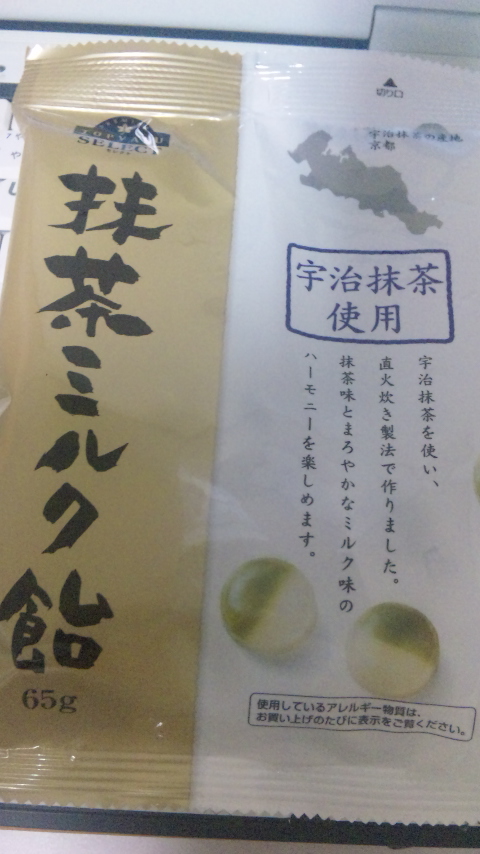 TOPVALU
SELECT
抹茶ミルク飴
65g
切り口
宇治抹茶の産地
京都
宇治抹茶
使用
宇治抹茶を使い、
直火炊き製法で作りました。
抹茶味とまろやかなミルク味の
ハーモニーを楽しめます。
使用しているアレルギー物質は、
お買い上げのたびに表示をご覧ください。